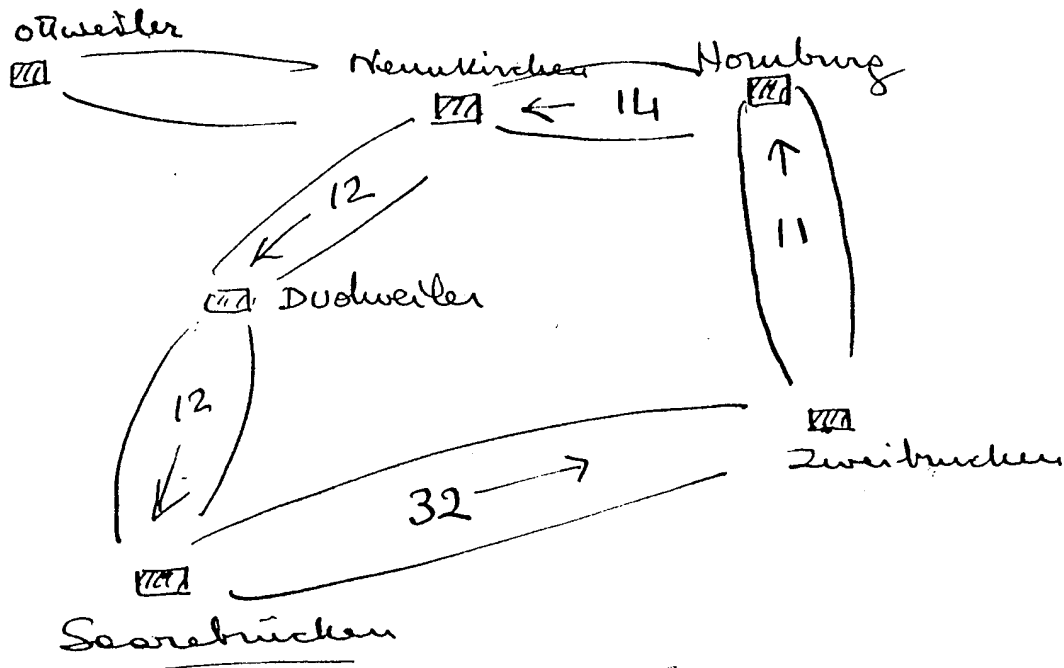 Ottweiler
Neunkirchen
Homburg
14
12
11
Dudweiler
12
32
Zweibrucken
Saarebrücken